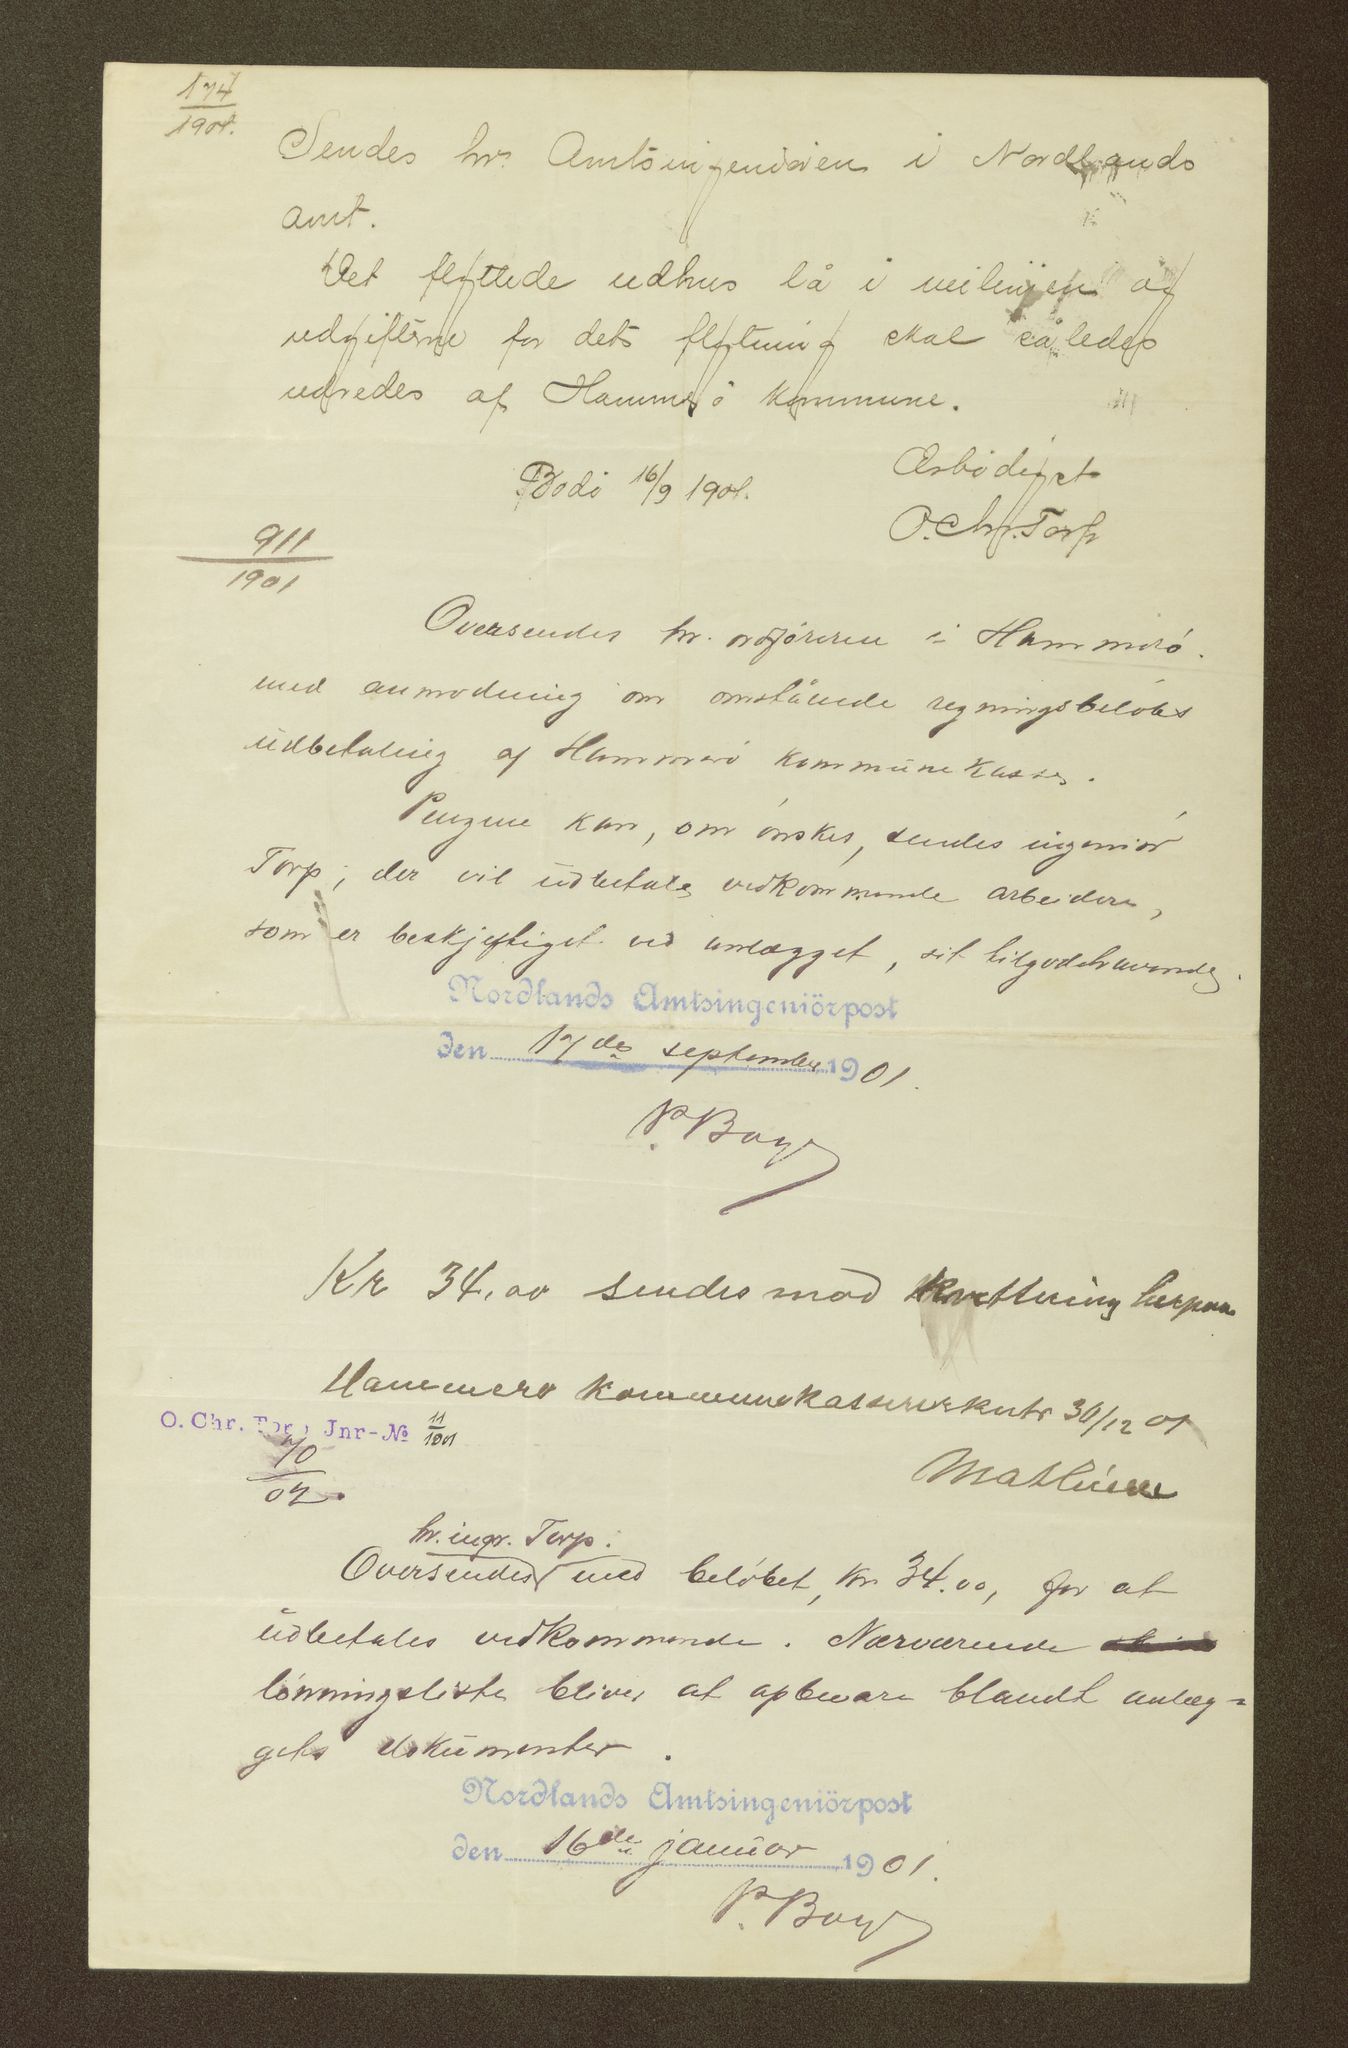 174
1901.
Sendes hr. Amtsingeniøren i Nordlands
amt.
Det flyttede udhus lå i veilinjen og
udgifterne for dets flytning skal således
udredes af Hammerö kommune.
Bodö 16/9 1901.
Ærbödigst
O. Chr. Torp
911
1901
Oversendes hr. ordföreren i Hammerö
med anmodning om omstående regningsbelöbs
udbetaling af Hammerö kommunekasse.
Pengene kan, om önskes, sendes ingeniör
Torp, der vil udbetale vedkommende arbeidere,
som er beskjæftiget ved anlægget, sit tilgodehavende.
Nordlands Amtsingeniörpost
den 17de september 1901.
P. Boye
Kr 34.00 sendes mod kvittering herpaa
Hammerö kommunekassererkontr 30/12 01
O. Chr. Torp Jnr-No 11/1901
70
02.
hr. ingr. Torp.
Oversendes med belöbet, kr. 34.00, for at
udbetales vedkommende. Nærværende
lönningsliste bliver at opbevare blandt anlæg-
gets dokumenter.
Nordlands Amtsingeniörpost
den 16de januar 1901.
P. Boye